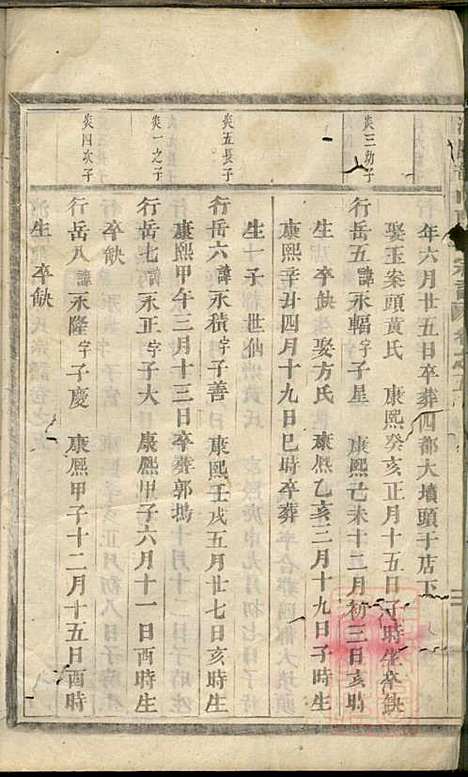 年六月廿五日卒葬四都大墳頭于店下
娶玉案頭黃氏 康熙癸亥正月十五日子時生卒缺
炎三幼子
行岳五諱永輻字子星 康熙己未十二月初三日亥時
生 卒缺 娶方氏 康熙乙亥二月十九日子時生
康熙辛丑四月十九日巳時卒葬
生一子 世仙
炎五長子
行岳六諱永積字子善 康熙壬戌五月廿七日亥時生
康熙甲午三月十三日卒葬郭塢
炎一之子
行岳七諱永正字子大 康熙甲子六月十一日酉時生
卒缺
炎四次子
行岳八諱永隆字子慶 康熙甲子十二月十五日酉時
生 卒缺